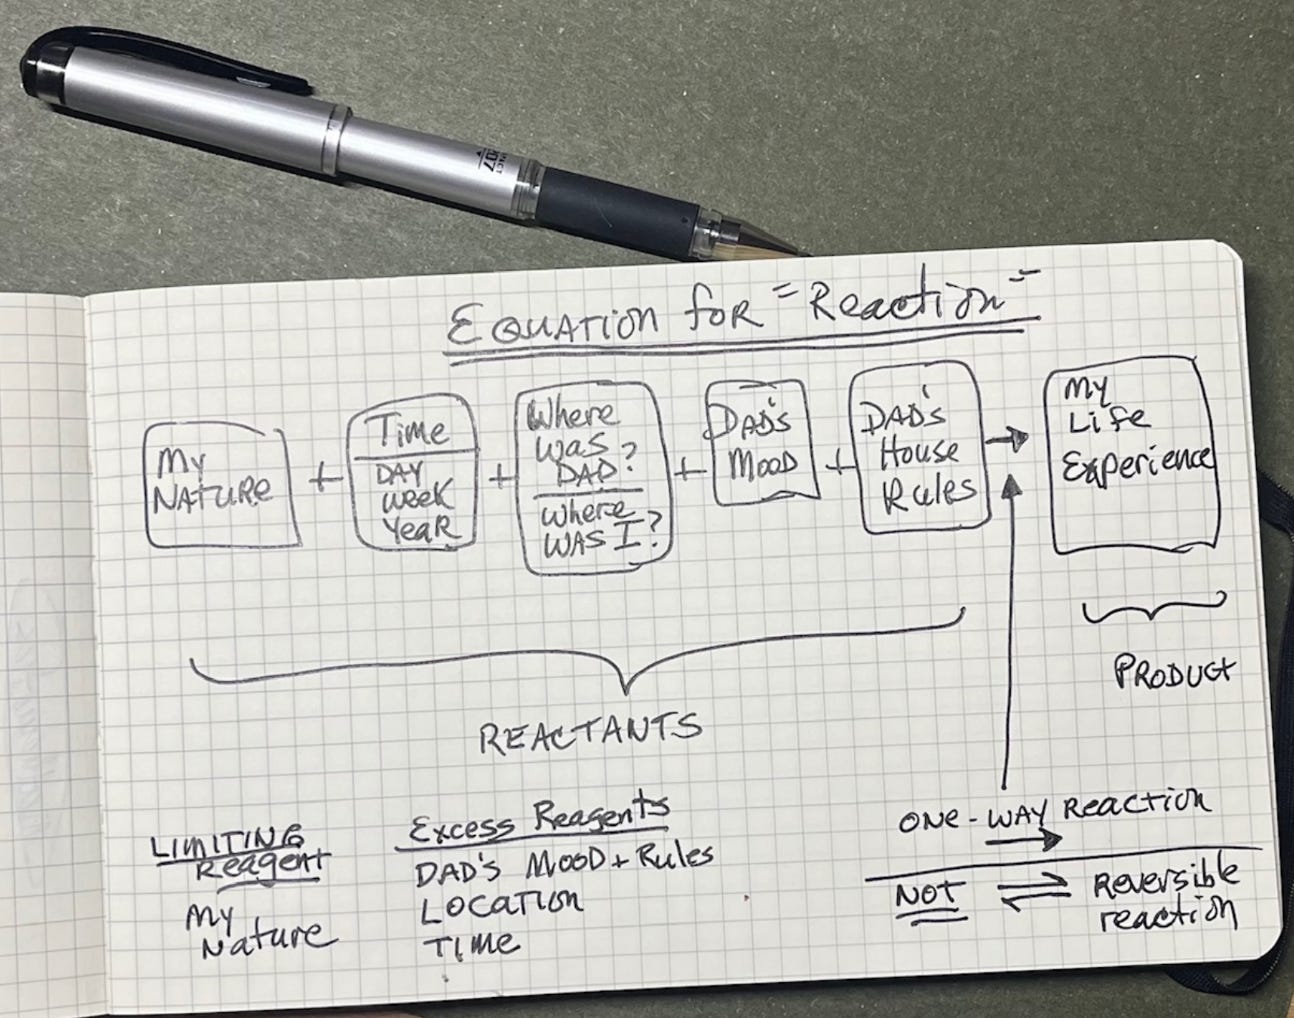 EQUATION FOR "Reaction"
MY
NATURE
+
Time
DAY
WEEK
YEAR
+
Where
WAS
DAD?
Where
WAS I?
+
DAD'S
MOOD
+
DAD'S
House
Rules
→
My
Life
Experience
REACTANTS
PRODUCT
LIMITING
Reagent
My
Nature
Excess Reagents
DAD'S MOOD + Rules
LOCATION
TIME
ONE-WAY REACTION
→
NOT ⇌ Reversible
reaction
207